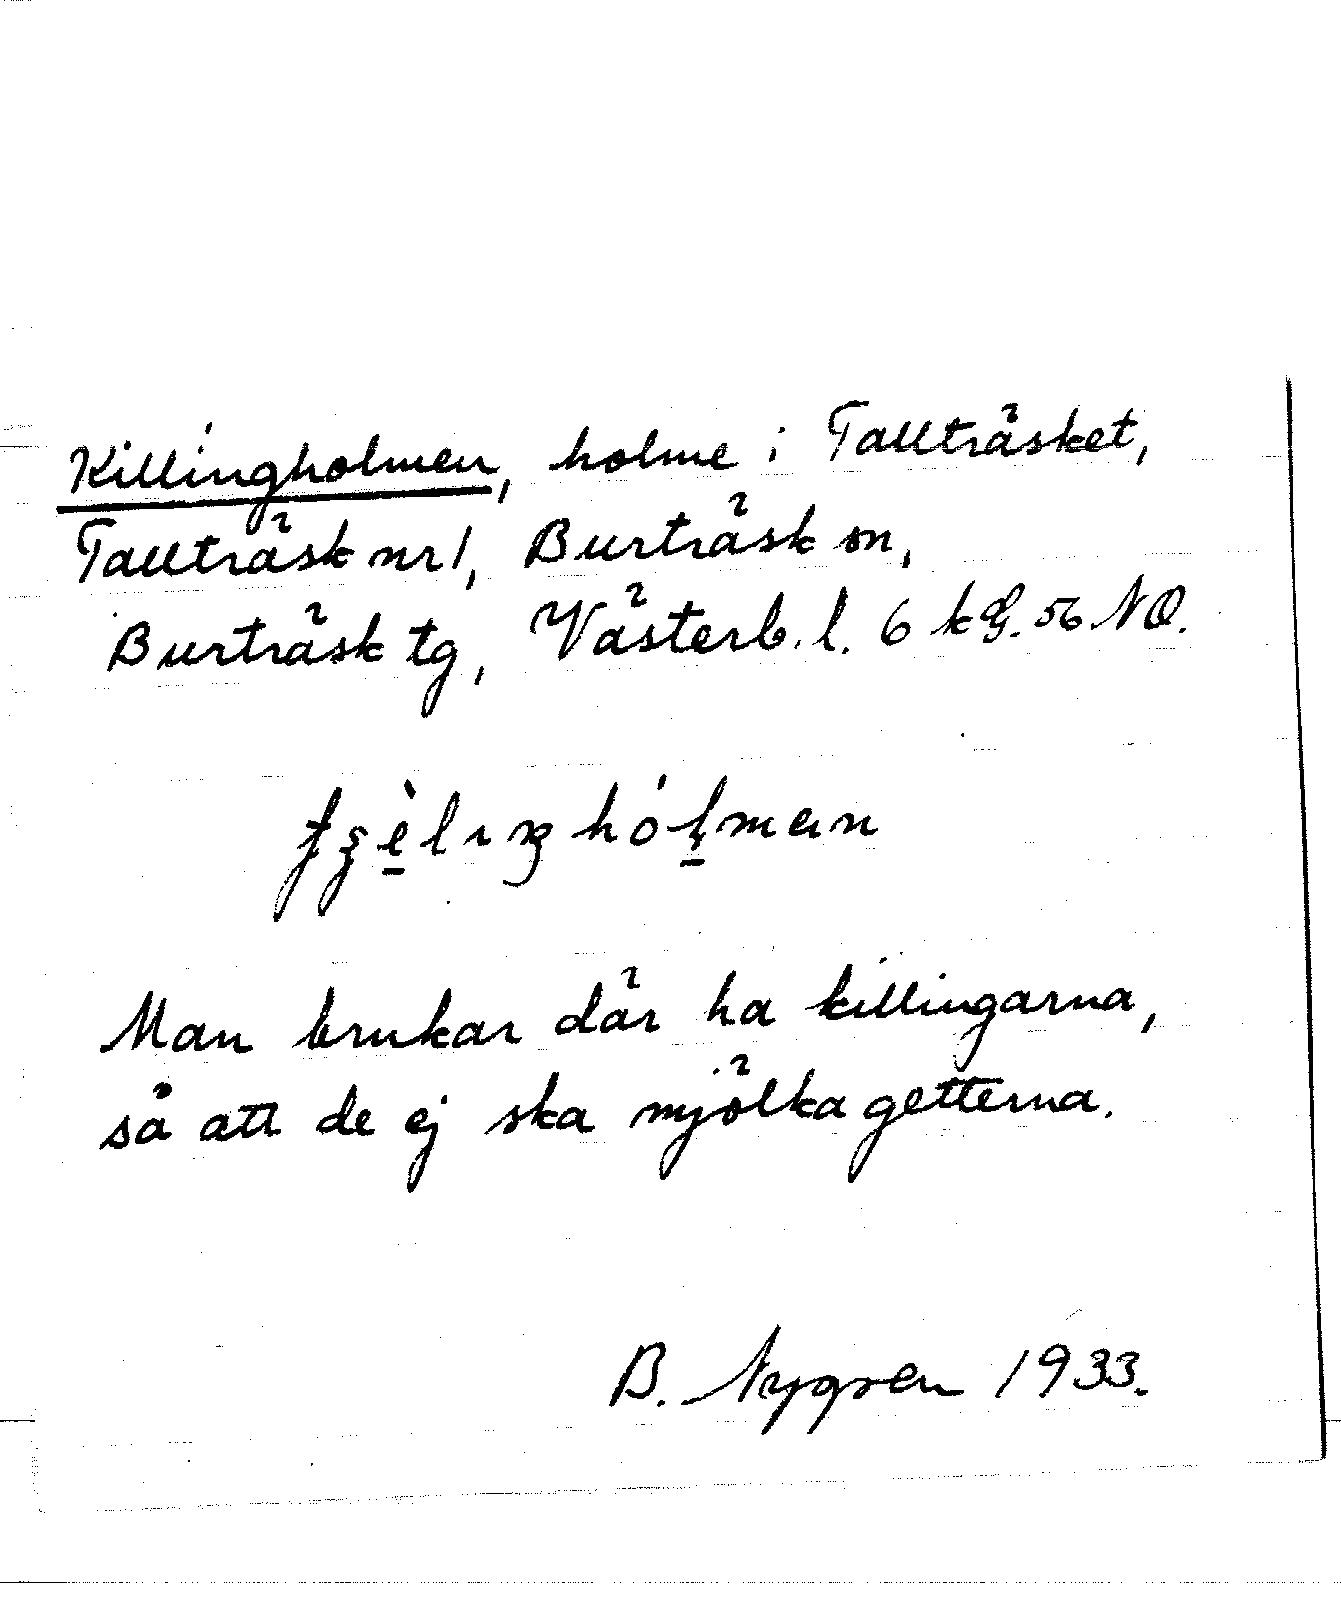 Killingholmen, holme i Tallträsket,
Tallträsk nr 1, Burträsk sn,
Burträsk tg, Västerb. l. 6 k G. 56 NO.
Man brukar där ha killingarna,
så att de ej ska mjölka getterna.
B. Nygren 1933.